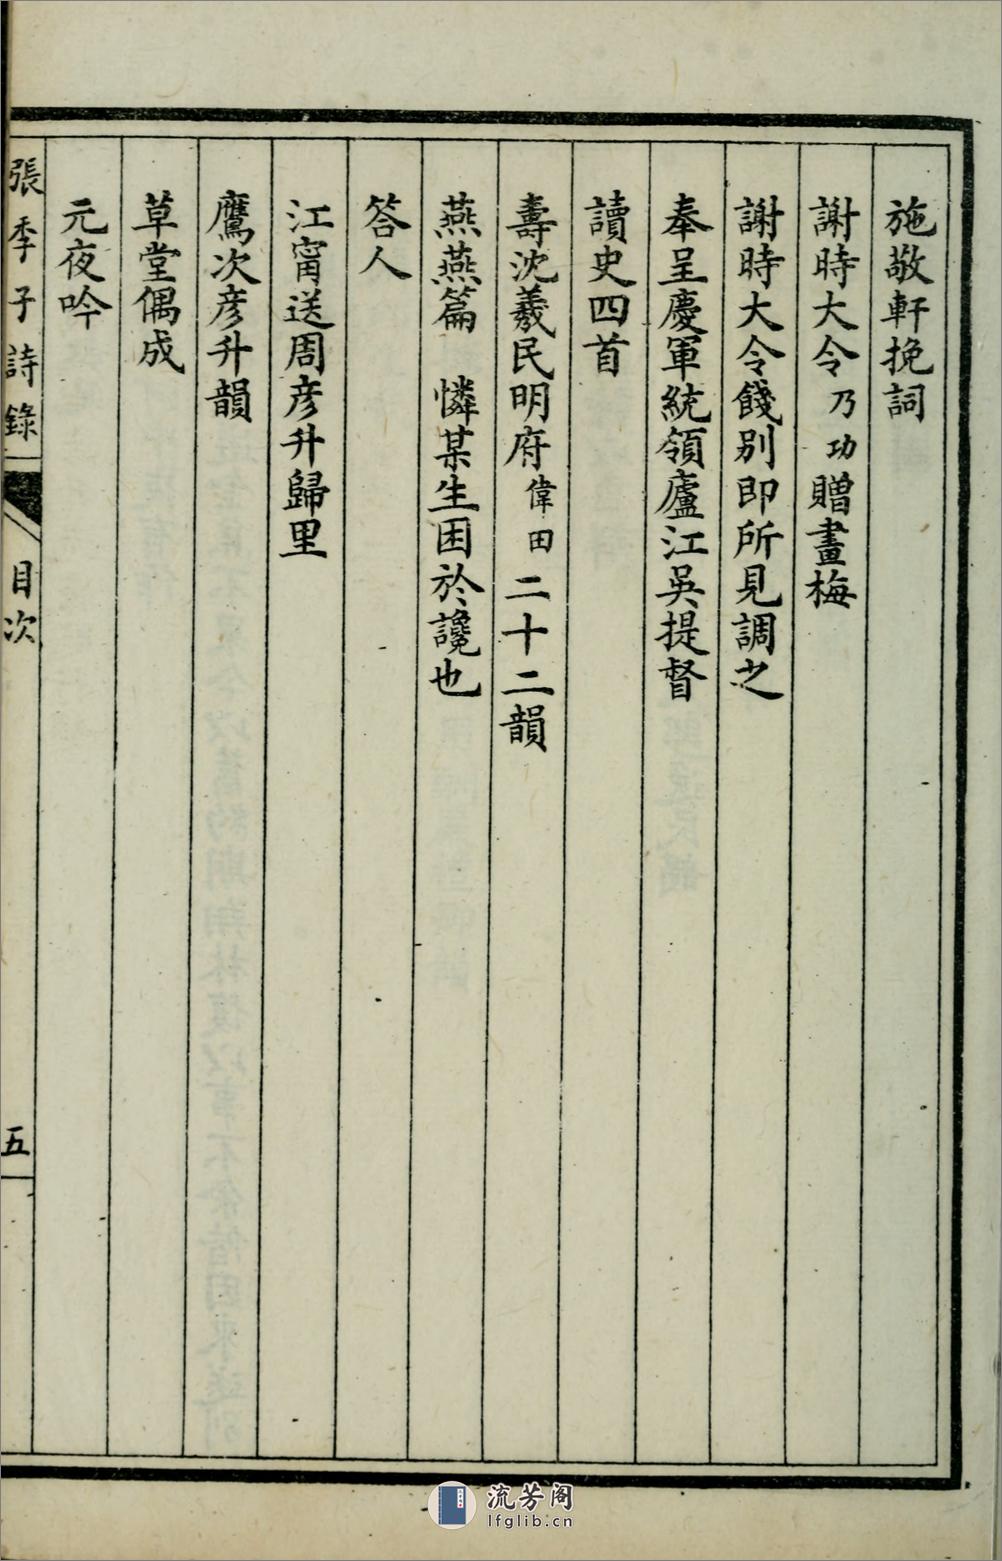 施敬軒挽詞
謝時大令乃功贈畫梅
謝時大令餞別即所見調之
奉呈慶軍統領廬江吳提督
讀史四首
壽沈羲民明府偉田二十二韻
燕燕篇　憐某生困於讒也
答人
江甯送周彥升歸里
鷹次彥升韻
草堂偶成
元夜吟
張季子詩錄
目次
五
流芳阁
lfglib.cn